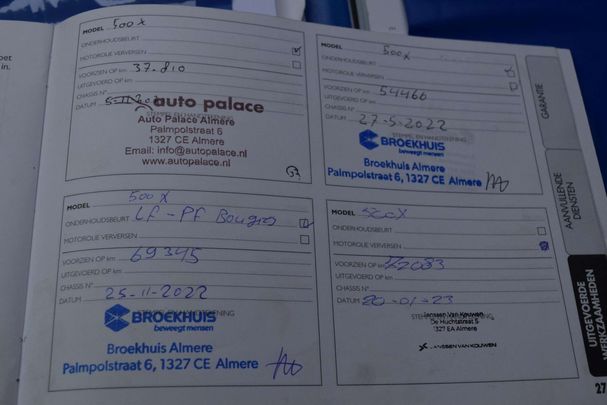 MODEL 500X
ONDERHOUDSBEURT
MOTOROLIE VERVERSEN
VOORZIEN OP km 37.810
UITGEVOERD OP km
CHASSIS N°
DATUM
auto palace
Auto Palace Almere
Palmpolstraat 6
1327 CE Almere
Email: info@autopalace.nl
www.autopalace.nl
MODEL 500X
ONDERHOUDSBEURT
MOTOROLIE VERVERSEN
VOORZIEN OP km 54466
UITGEVOERD OP km
CHASSIS N°
DATUM 27-5-2022
STEMPEL EN HANDTEKENING
BROEKHUIS
beweegt mensen
Broekhuis Almere
Palmpolstraat 6, 1327 CE Almere
MODEL 500X
ONDERHOUDSBEURT LF-PF Bougies
MOTOROLIE VERVERSEN
VOORZIEN OP km 69345
UITGEVOERD OP km
CHASSIS N°
DATUM 25-11-2022
BROEKHUIS
beweegt mensen
Broekhuis Almere
Palmpolstraat 6, 1327 CE Almere
MODEL 500X
ONDERHOUDSBEURT
MOTOROLIE VERVERSEN
VOORZIEN OP km 72083
UITGEVOERD OP km
CHASSIS N°
DATUM 20-01-23
Janssen Van Kouwen
De Huchtstraat 5
1327 EA Almere
JANSSEN VAN KOUWEN
GARANTIE
AANVULLENDE
DIENSTEN
UITGEVOERDE
WERKZAAMHEDEN
27
in.